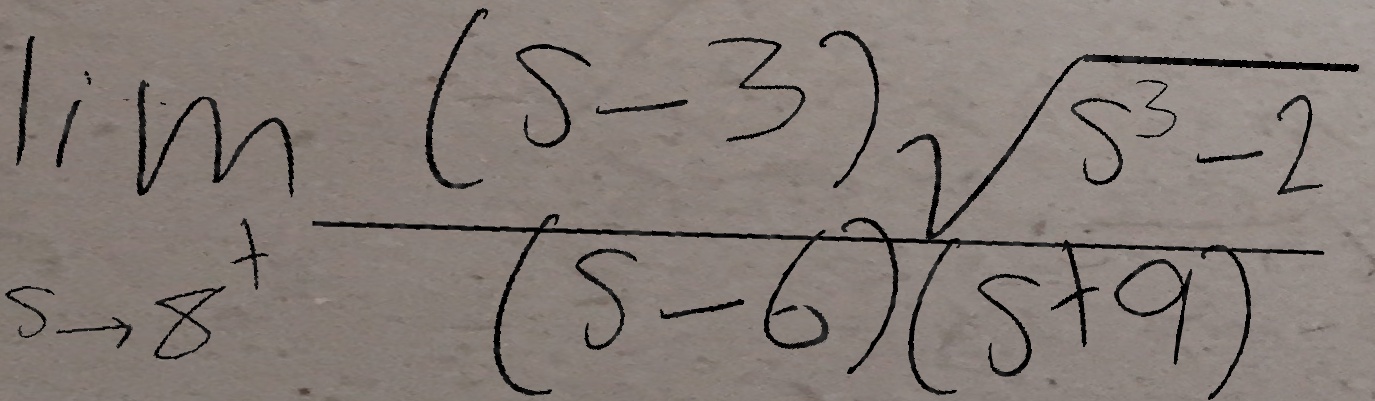 \lim_{s \to 8^+} \frac{(s-3)\sqrt{s^3-2}}{(s-6)(s+9)}